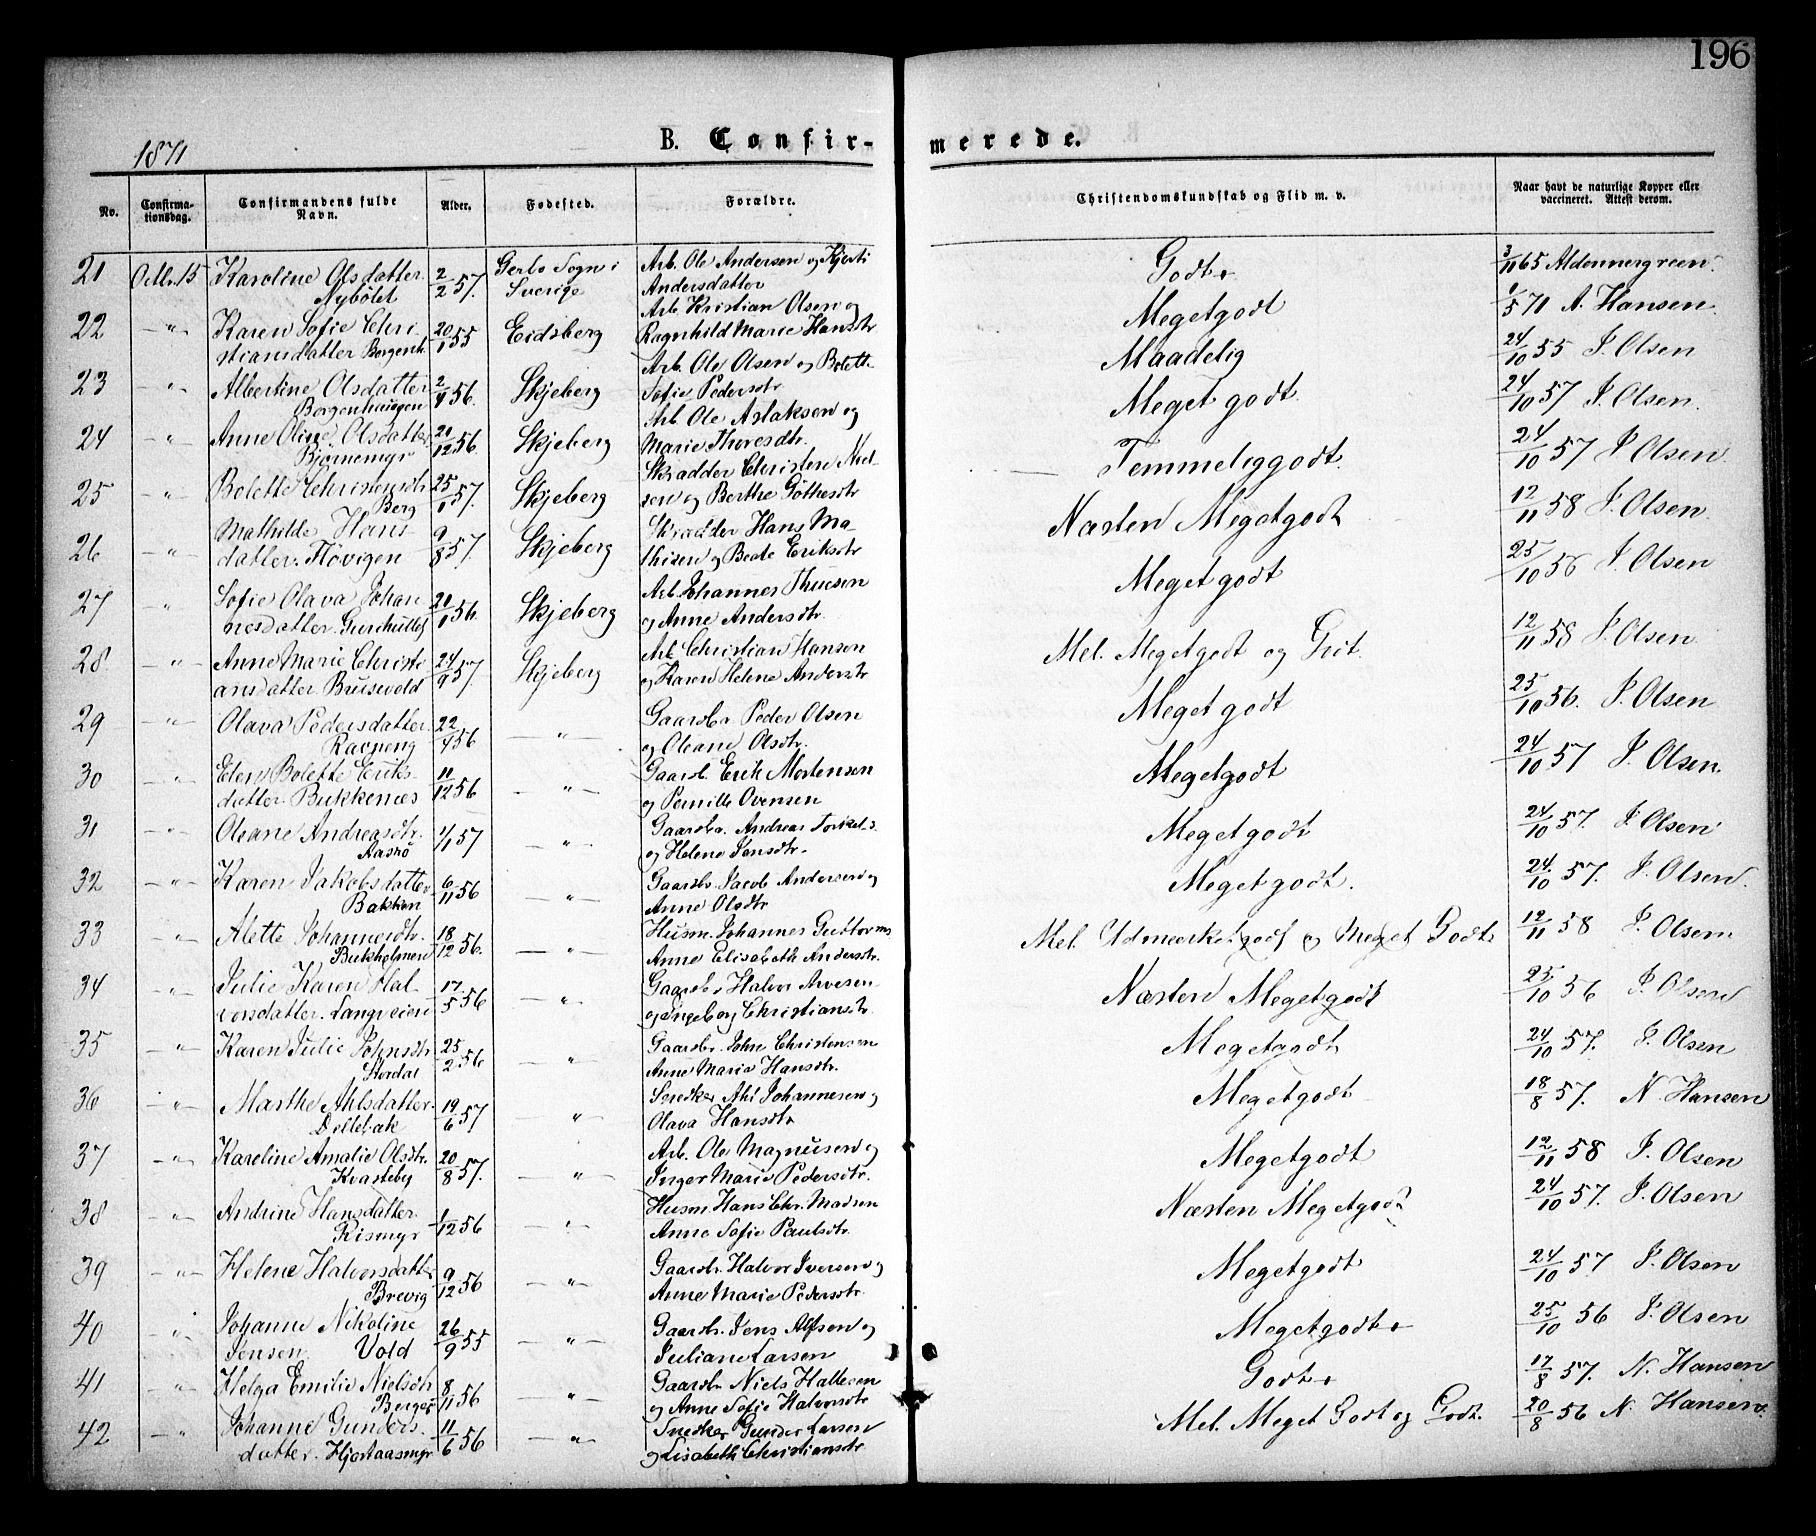 196
1871
B. Confir-
merede.
No.
Confirma-tionsdag.
Confirmandens fulde Navn.
Alder.
Fødested.
Forældre.
Christendomskundskab og Flid m. v.
Naar havt de naturlige Kopper eller vaccineret. Attest derom.
21 Octbr. 15 Karoline Olsdatter 2/2 57. Gerbo Sogn i Arb. Ole Andersen og Kjersti Godt 3/11 65
Nybölet Sverige Andersdatter
22 —"— Karen Sofie Chri- 20/1 55 Eidsberg Arb. Kristian Olsen og Megetgodt 1/5 71 A. Hansen
stiansdatter Borgenh. Ragnhild Marie Hansdtr
23 " Albertine Olsdatter 2/4 56. Skjeberg Arb. Ole Olsen og Bolette Maadelig 24/10 55 J. Olsen
Borgenhaugen Sofie Pedersdtr
24 —"— Anne Oline Olsdatter 20/12 56. Skjeberg Arb Ole Aslaksen og Meget godt 24/10 57 J. Olsen.
Bjørnemyr Marie Thoresdtr.
25 —"— Bolette Christensdtr 25/1 57. Skjeberg Skradder Christen Niel- Temmeliggodt 24/10 57 J Olsen
Berg sen og Berthe Göthesdtr
26 —"— Mathilde Hans- 9/8 57. Skjeberg Skradder Hans Ma- Næsten Megetgodt 12/11 58 J. Olsen
datter. Høvigen thisen og Beate Eriksdtr
27 " Sofie Olava Johan 21/1 56. Skjeberg Arb. Johannes Thuesen Megetgodt 25/10 56 J. Olsen
nesdatter og Anne Andersdtr.
28 —"— Anne Marie Christi 24/9 57. Skjeberg Arb Christian Hansen Mel. Megetgodt og Godt 12/11 58 J. Olsen
ansdatter og Karen Helene Andersdtr
29 —"— Olava Pedersdatter 22/4 56 —"— Gaardbr Peder Olsen Megetgodt 25/10 56. J. Olsen
Ravneng og Oleane Olsdtr.
30 —"— Elen Bolette Eriks- 11/12 56 —"— Gaardb. Erik Mortensen Megetgodt 24/10 57 J. Olsen.
datter Bukkenæs og Pernille Ovensen
31 —"— Oleane Andreasdtr. 1/1 57 —"— Gaardbr. Andreas Torkels. Megetgodt 24/10 57. J. Olsen
og Helene Jensdtr.
32 —"— Karen Jakobsdatter 6/11 56 —"— Gaardbr. Jacob Andersen og Megetgodt. 24/10 57. J. Olsen.
Bakken Anne Olsdtr
33 —"— Alette Johannesdtr. 18/12 56. —"— Husm. Johannes Guttorms Mel. Udmærketgodt og Meget Godt 12/11 58 J. Olsen
Bukholmen Anne Elisabeth Andersdtr.
34 —"— Julie Karen Hal- 17/5 56 —"— Gaardbr Halvor Arvesen Næsten Megetgodt 25/10 56 J. Olsen
vorsdatter. Langveien og Ingeborg Christiansdtr.
35 —"— Karen Julie Johnsdtr 25/2 56 " Gaardbr. John Christensen Megetgodt 24/10 57. J. Olsen
Stordal Anne Maria Hansdtr.
36 —"— Marthe Ahlsdatter 19/6 57 " Snedker Ahl Johannesen og Megetgodt 18/8 57. N. Hansen
Dillebak Olava Hansdtr
37 —"— Karoline Amalie Olsdtr. 20/8 57. —"— Arb. Ole Magnusen og Megetgodt 12/11 58 J. Olsen
Kvasteby Inger Marie Pedersdtr.
38 —"— Andrine Hansdatter 1/12 56 —"— Husm Hans Chr. Madsen Næsten Megetgodt 24/10 57. J. Olsen
Rismyr Anne Sofie Paulsdtr.
39 —"— Helene Halvorsdatter 9/12 56 —"— Gaardbr. Halvor Iversen og Megetgodt 24/10 57 J. Olsen
Brevig Anne Marie Pedersdtr.
40 —"— Johanne Nikoline 26/9 55 —"— Gaardbr. Jens Alfsen og Megetgodt 25/10 56 J. Olsen
Jensen Vold Juliane Larsen
41 —"— Helga Emilie Nielsdtr 8/11 56 —"— Gaardbr Niels Hallesen Godt 17/8 57. N. Hansen
Berger og Anne Sofie Halvorsdtr
42 —"— Johanne Gunders- 11/6 56 —"— Snedker Gunder Larsen Mel. Meget Godt og Godt. 20/8 56 N. Hansen
datter. Hjortaasmyr og Lisabeth Christiansdtr